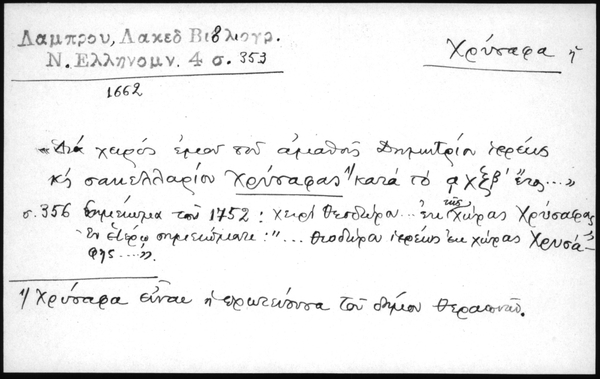 Λαμπρου, Λακεδ Βιβλιογρ.
Ν. Ελληνομν. 4 σ. 353
Χρύσαφα ἡ
1662
«Διὰ χειρὸς ἐμοῦ τοῦ ἀμαθοῦς Δημητρίου ἱερέως
κὴ σακελλαρίου Χρύσαφας 1/ κατὰ τὸ αχξβ' ἔτος...»
σ. 356 Σημείωμα τοῦ 1752: χειρὶ Θεοδώρου... ἐκ τῆς χώρας Χρύσαφας
Ἐν ἑτέρῳ σημειώματι: "... Θεοδώρου ἱερέως ἐκ χώρας Χρυσά-
φης...».
1/ Χρύσαφα εἶναι ἡ πρωτεύουσα τοῦ δήμου Θεραπνῶν.